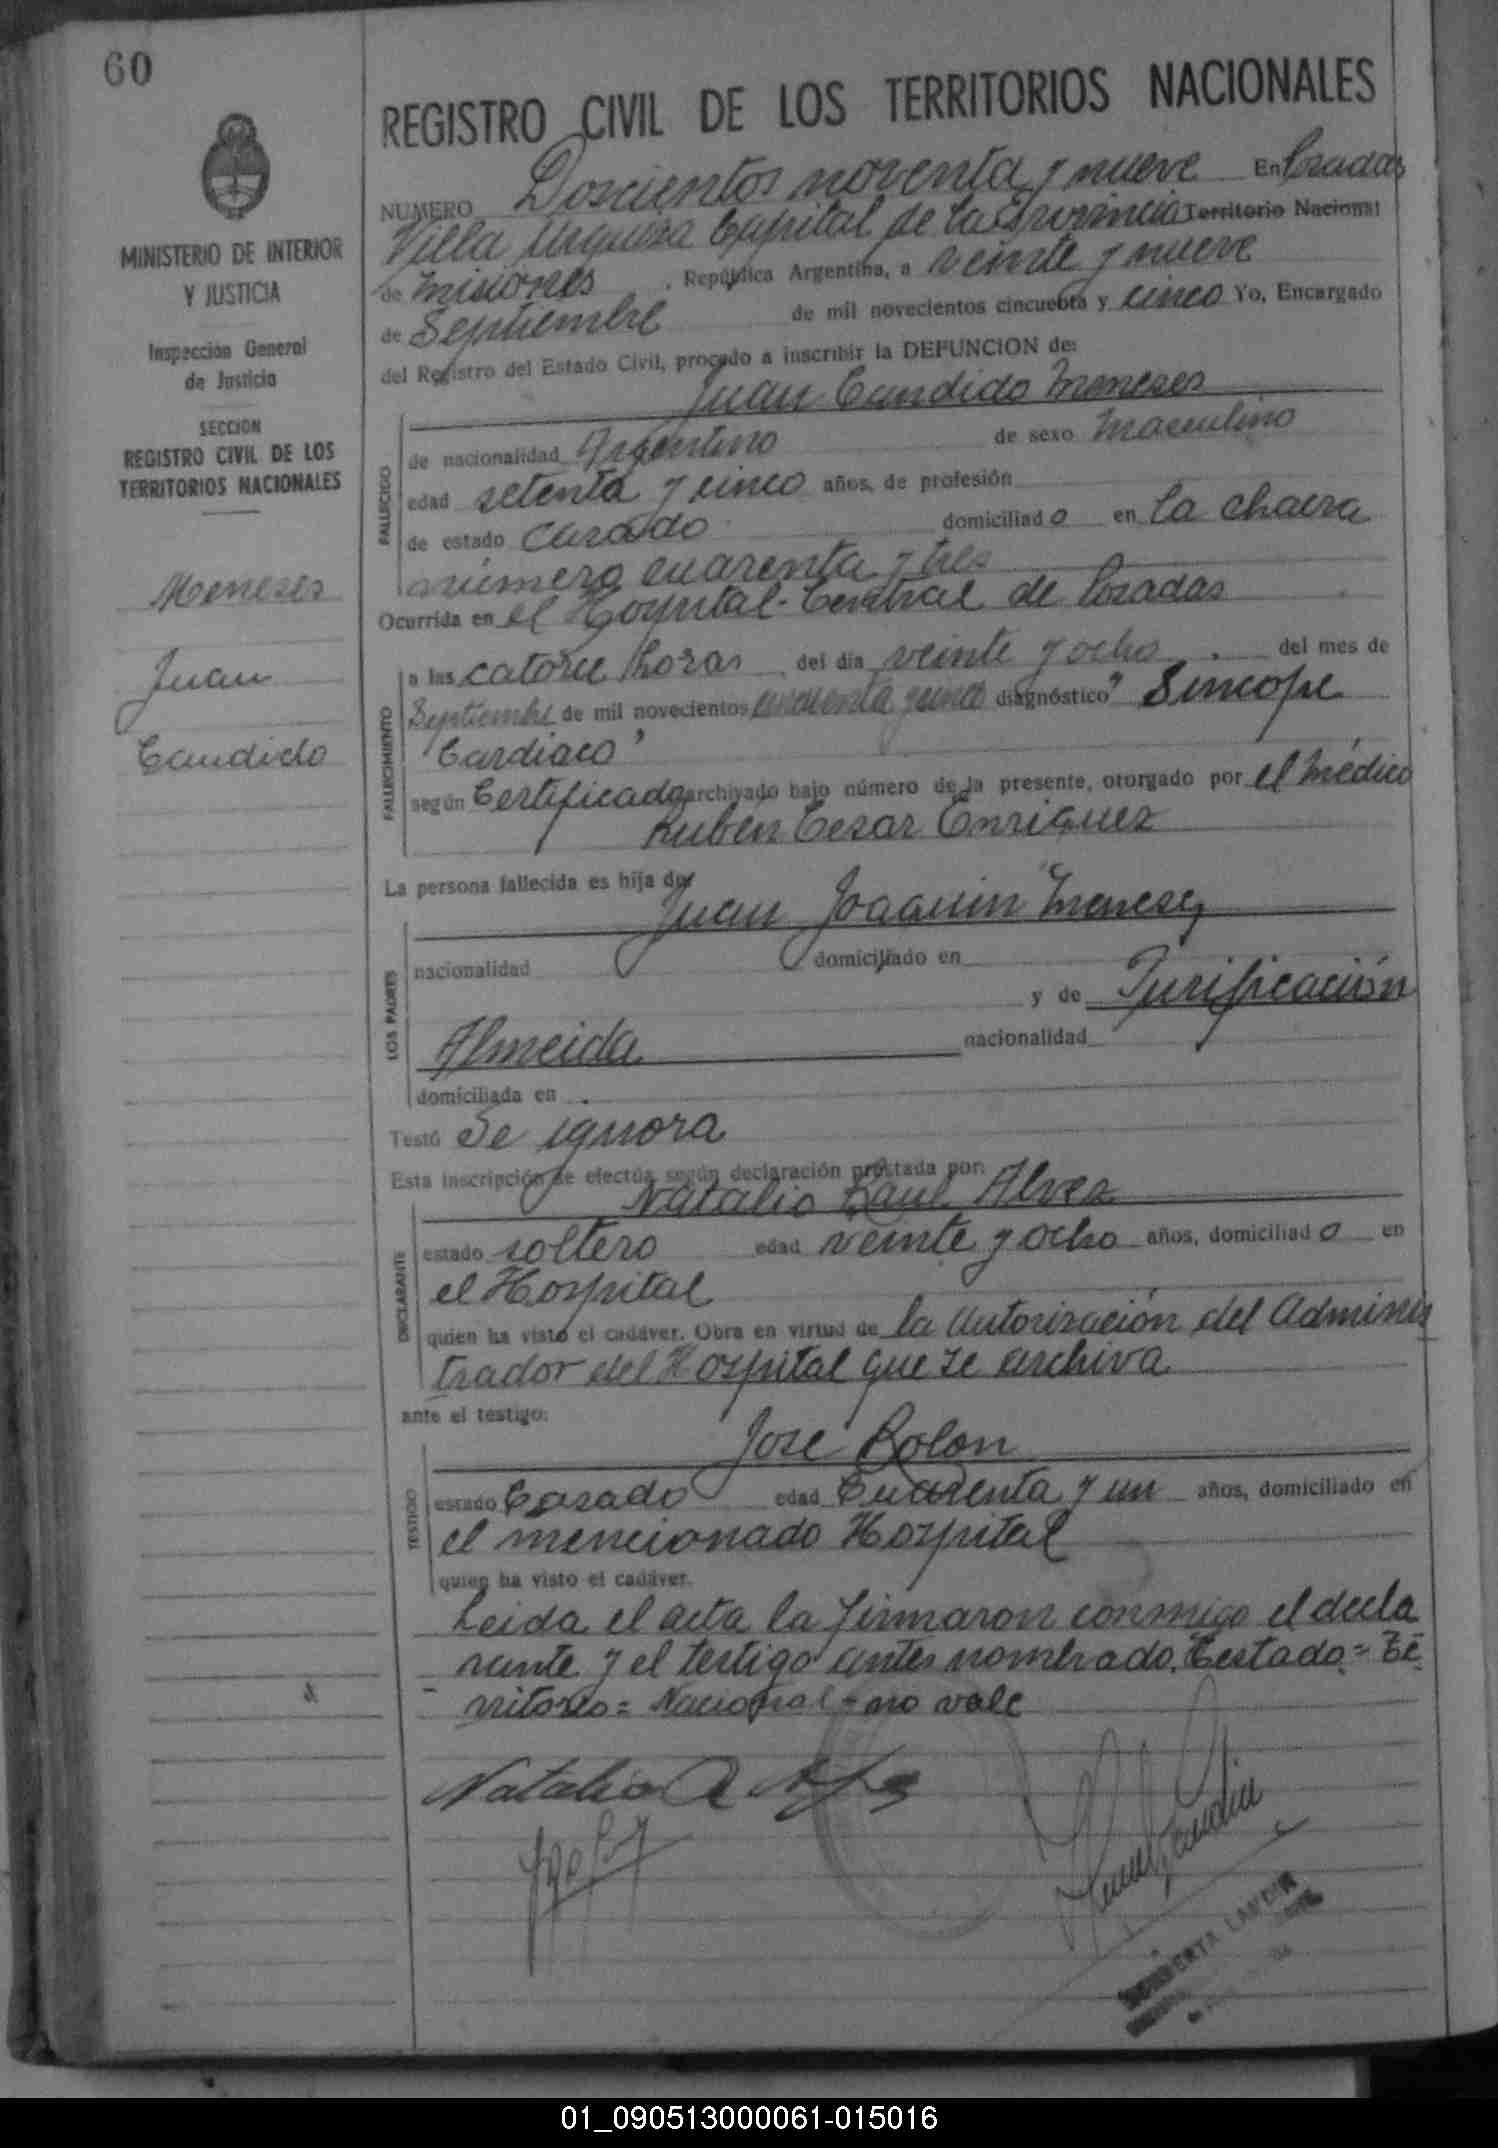 60
REGISTRO CIVIL DE LOS TERRITORIOS NACIONALES
MINISTERIO DE INTERIOR
Y JUSTICIA
Inspección General
de Justicia
SECCION
REGISTRO CIVIL DE LOS
TERRITORIOS NACIONALES
Meneses
Juan
Candido
NUMERO Doscientos noventa y nueve En Posadas
Villa Urquiza Capital de la Provincia Territorio Nacional
de Misiones, República Argentina, a veinte y nueve
de Septiembre de mil novecientos cincuenta y cinco Yo, Encargado
del Registro del Estado Civil, procedo a inscribir la DEFUNCION de:
Juan Candido Meneses
FALLECIDO
de nacionalidad Argentino de sexo Masculino
edad setenta y cinco años, de profesión
de estado Casado domiciliado en la chacra
número cuarenta y tres
Ocurrida en el Hospital Central de Posadas
FALLECIMIENTO
a las catorce horas del día veinte y ocho del mes de
Septiembre de mil novecientos cincuenta y cinco diagnóstico "Sincope
Cardiaco"
según Certificado archivado bajo número de la presente, otorgado por el Médico
Rubén Cesar Enriquez
La persona fallecida es hija de:
Juan Joaquin Meneses
LOS PADRES
nacionalidad domiciliado en
y de Purificación
Almeida nacionalidad
domiciliada en
Testó Se ignora
Esta inscripción se efectúa según declaración prestada por:
Natalio Raul Alvez
DECLARANTE
estado soltero edad veinte y ocho años, domiciliado en
el Hospital
quien ha visto el cadáver. Obra en virtud de la Autorización del Adminis
trador del Hospital que se archiva
ante el testigo:
José Bolon
TESTIGO
estado Casado edad Cuarenta y un años, domiciliado en
el mencionado Hospital
quien ha visto el cadáver.
Leida el acta la firmaron conmigo el decla
rante y el testigo antes nombrado. Testado = Te
rritorio = Nacional = no vale
Natalio R
LANDIN
01_090513000061-015016